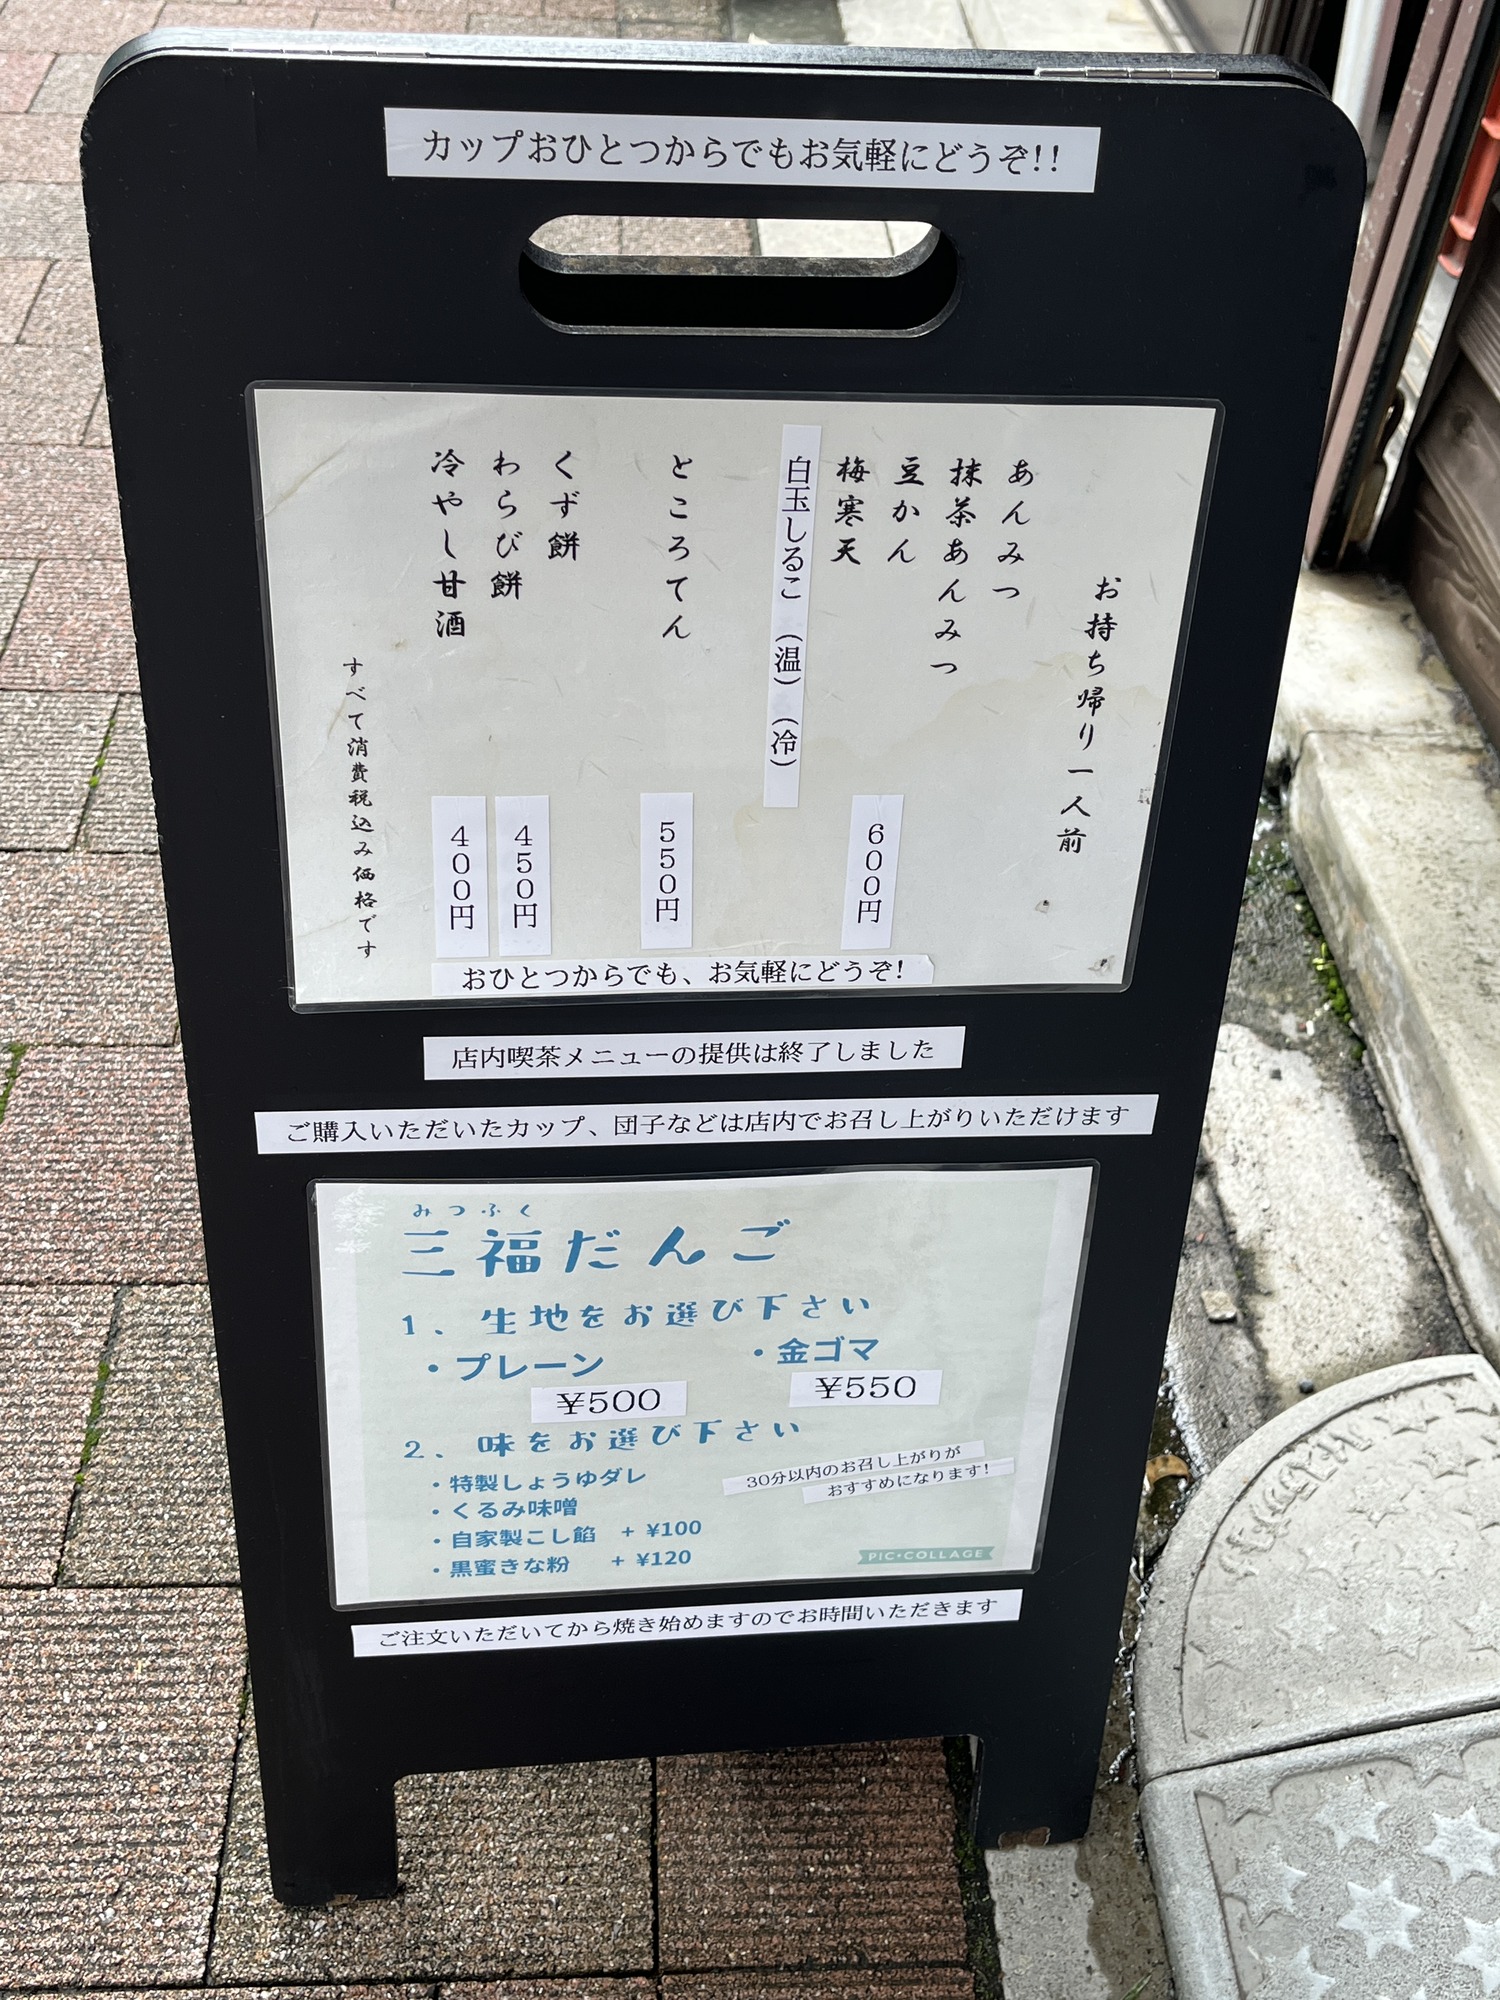 カップおひとつからでもお気軽にどうぞ!!
お持ち帰り一人前
あんみつ
抹茶あんみつ
豆かん
梅寒天
600円
白玉しるこ (温) (冷)
ところてん
550円
くず餅
わらび餅
450円
冷やし甘酒
400円
すべて消費税込み価格です
おひとつからでも、お気軽にどうぞ!
店内喫茶メニューの提供は終了しました
ご購入いただいたカップ、団子などは店内でお召し上がりいただけます
みつふく
三福だんご
1、生地をお選び下さい
・プレーン ・金ゴマ
¥500 ¥550
2、味をお選び下さい
・特製しょうゆダレ
・くるみ味噌
・自家製こし餡 + ¥100
・黒蜜きな粉 + ¥120
30分以内のお召し上がりが
おすすめになります!
PIC•COLLAGE
ご注文いただいてから焼き始めますのでお時間いただきます